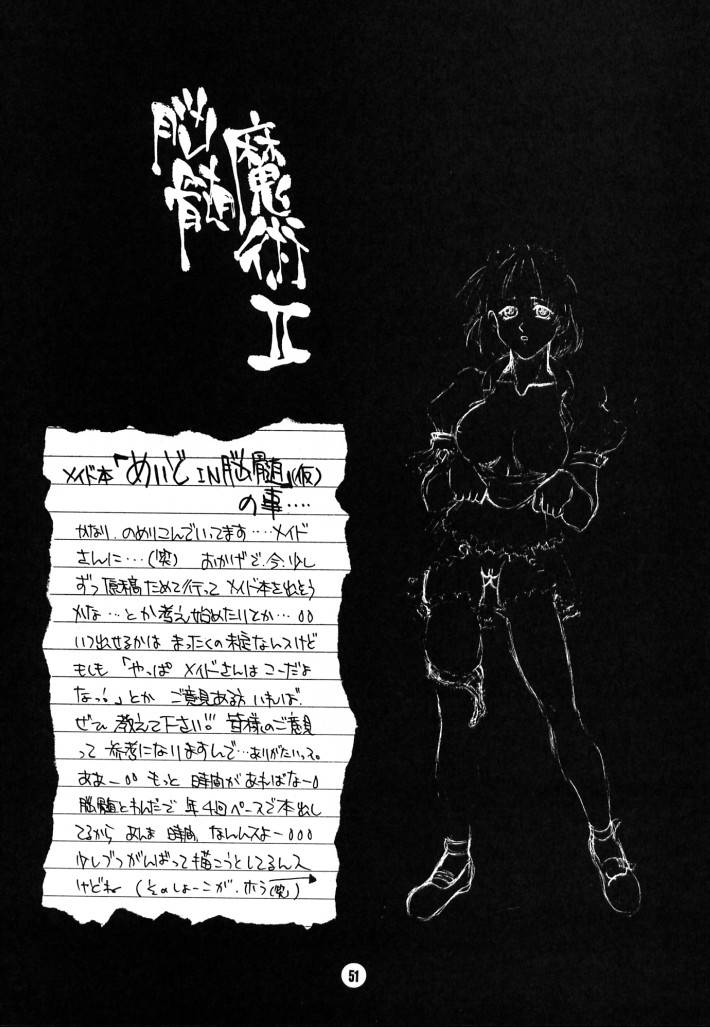 魔術II
脳髄
メイド本「めいどIN脳髄」(仮)
の事‥‥
かなり、のめりこんでいってます‥‥メイド
さんに‥‥(笑) おかげで、今、少し
ずつ原稿ためて行って メイド本を出そう
かな‥‥とか考え始めたりとか‥‥。。
いつ出せるかは まったくの未定なんスけど
もしも「やっぱ メイドさんは こーだよ
なっ!」とか ご意見ある方 いれば、
ぜひ 教えて下さい!! 皆様のご意見
って 参考になりますんで‥‥ありがたいっス。
ああー。。もっと 時間があればなー。
脳髄と で 年4回ペースで本出し
てるから あんま 時間 なんスよー。。。
少しづつがんばって描こうとしてるんス
けどね (そのしょーこが、ホラ(笑))
51